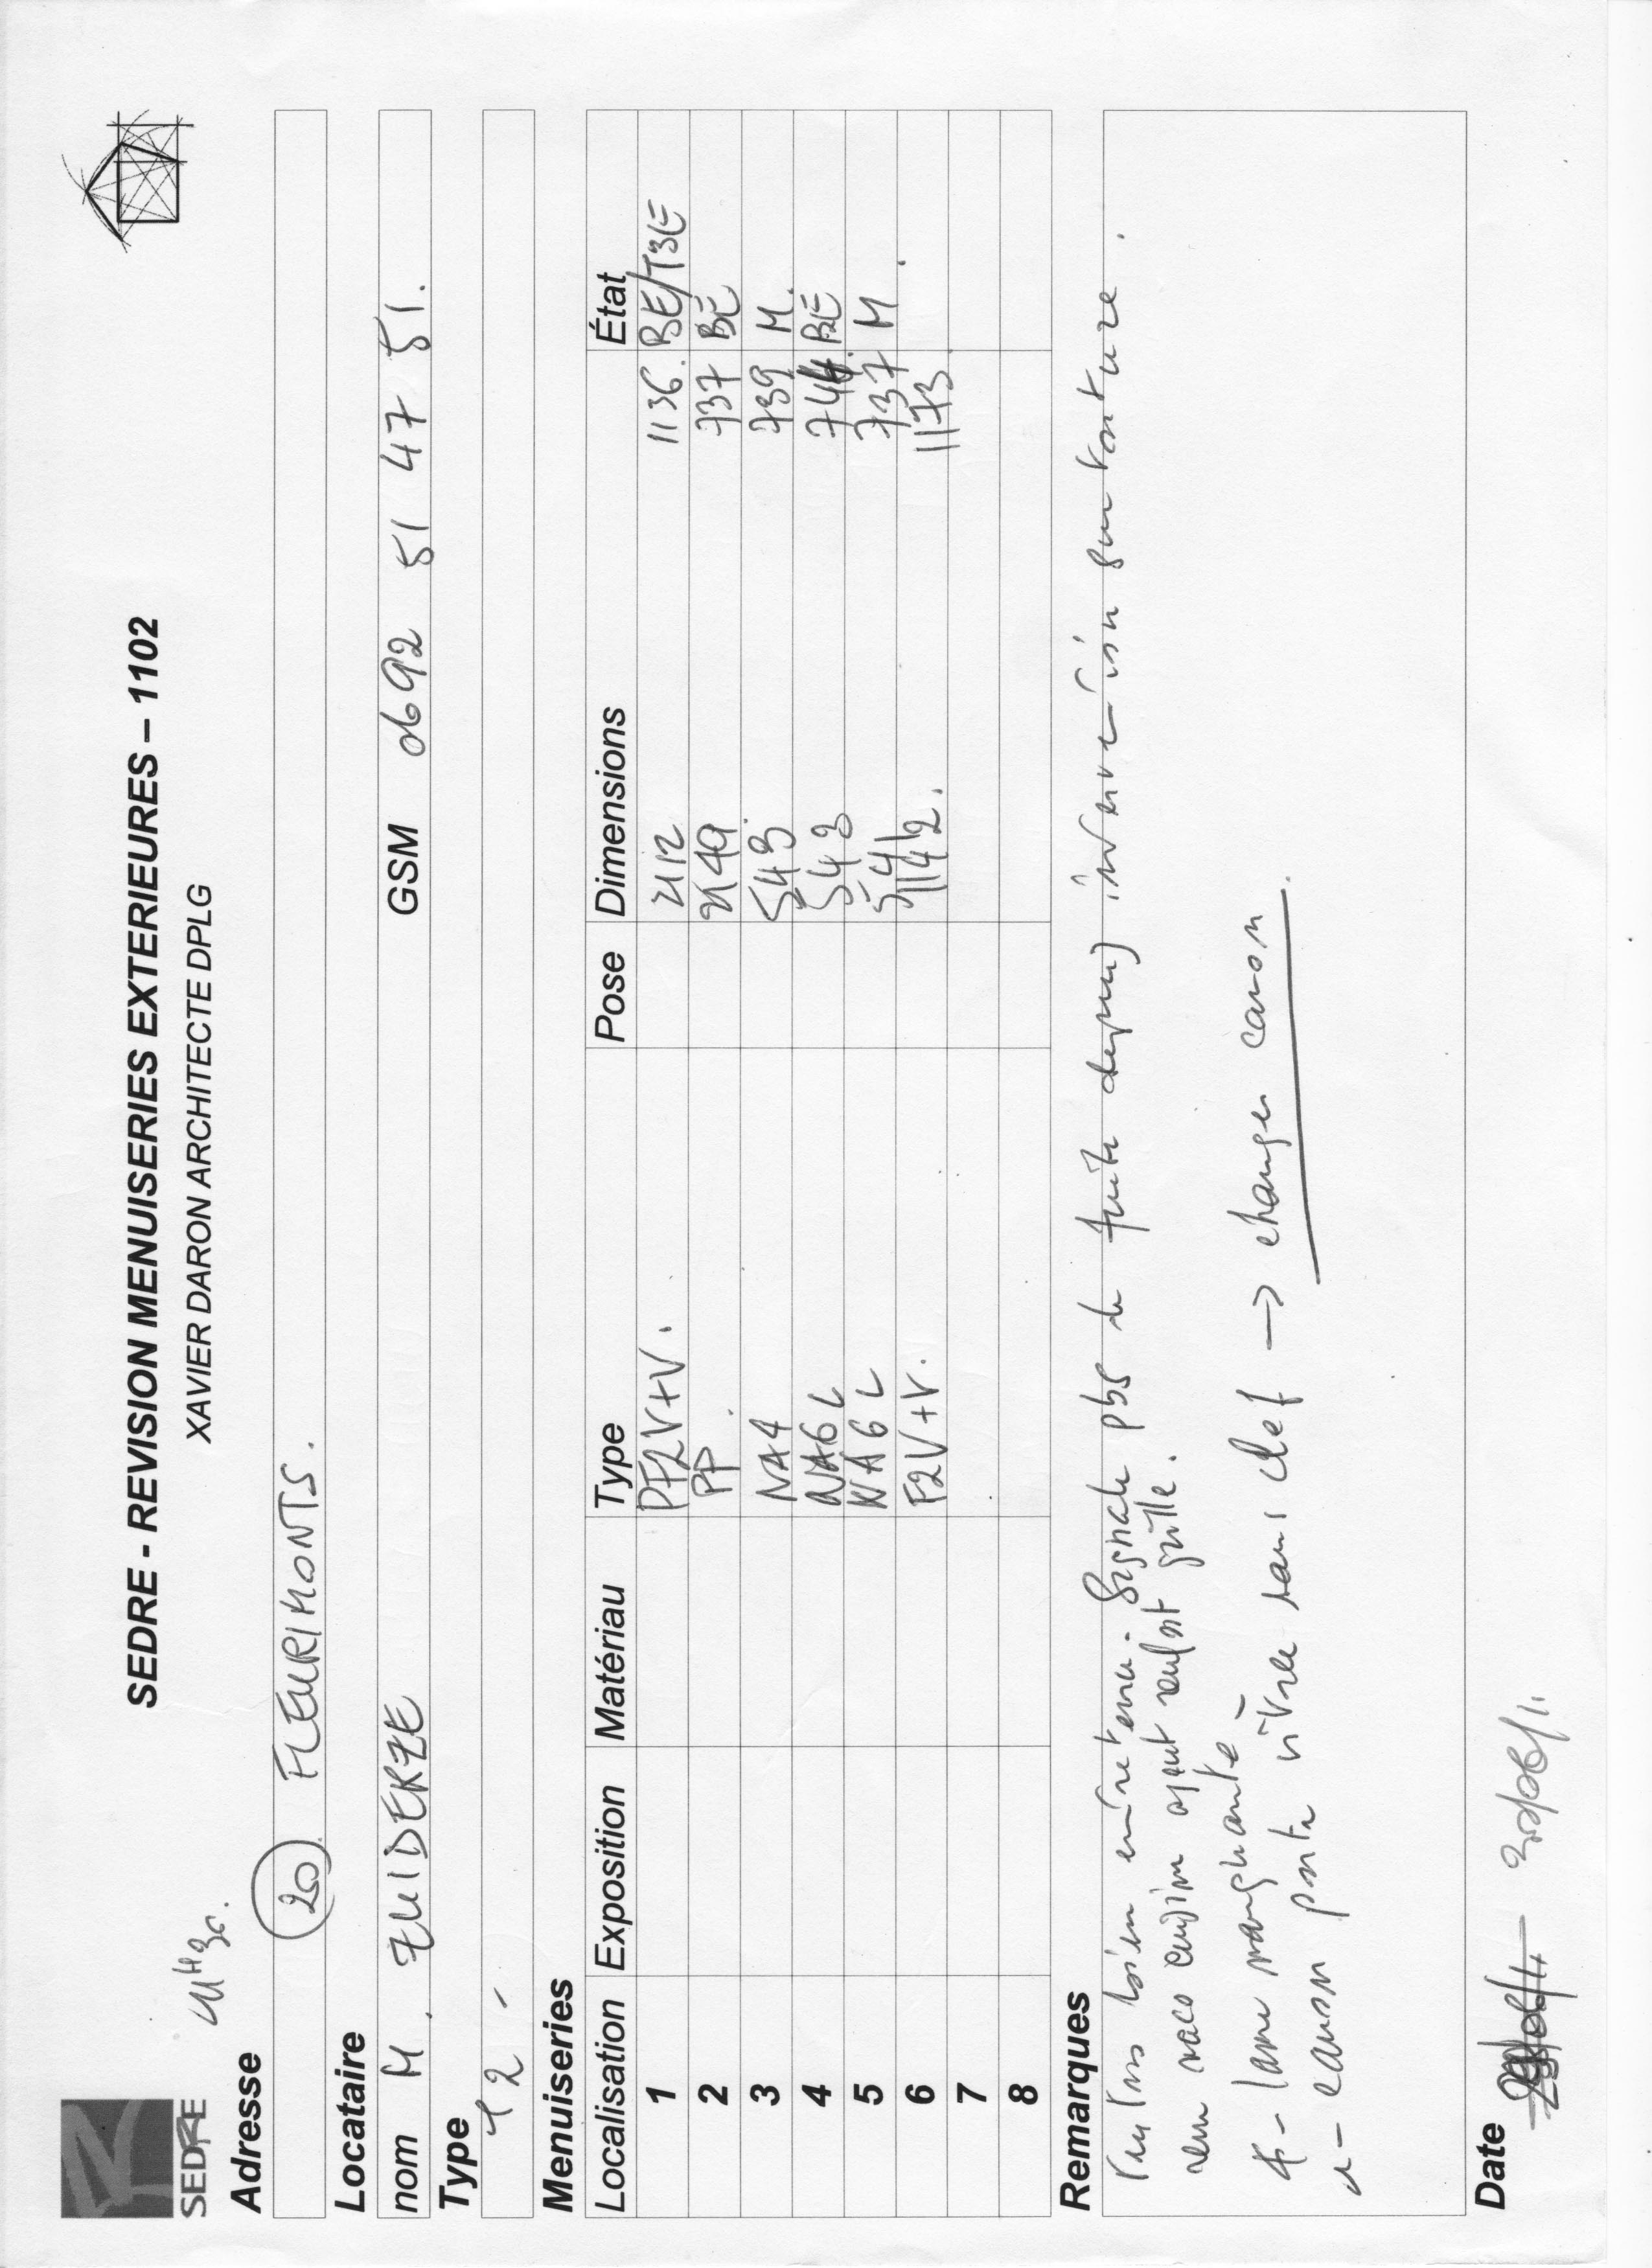 SEDRE - REVISION MENUISERIES EXTERIEURES – 1102
XAVIER DARON ARCHITECTE DPLG
SEDRE
Adresse
20 FLEURIMONTS.
Locataire
nom M. ZUIDERZE GSM 0692 51 47 51.
Type
T2-
Menuiseries
Localisation Exposition Matériau Type Pose Dimensions État
1 PF2V+V. 2112 1136. BE/TBE
2 PP. 2140 737 BE
3 NA4 543. 739 M.
4 NA6L 543 744. BE
5 NA6L 541 737 M
6 F2V+V. 1142. 1173.
7
8
Remarques
bien entretenu. Signale pbs de fuite depuis intervention sur toiture.
ayant grille.
4- lame manquante
1- canon porte vitrée sans clef → changer canon.
Date